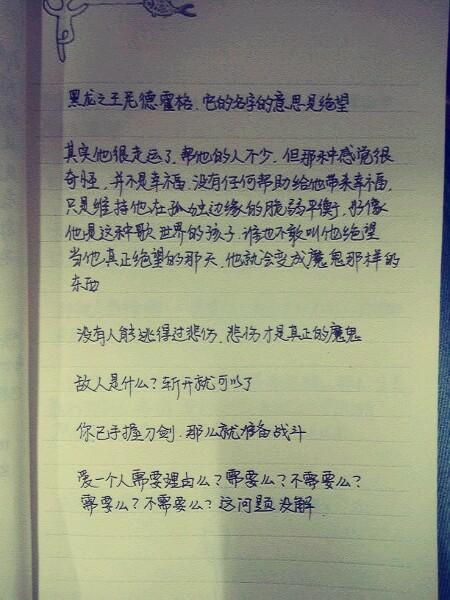 黑龙之王尼德霍格.它的名字的意思是绝望
其实他很走运了,帮他的人不少.但那种感觉很
奇怪,并不是幸福.没有任何帮助给他带来幸福,
只是维持他在孤独边缘的脆弱平衡,好像
他是这种歌 世界的孩子.谁也不敢叫他绝望
当他真正绝望的那天.他就会变成魔鬼那样的
东西
没有人能逃得过悲伤.悲伤才是真正的魔鬼
敌人是什么?斩开就可以了
你已手握刀剑.那么就准备战斗
爱一个人需要理由么?需要么?不需要么?
需要么?不需要么?这问题没解